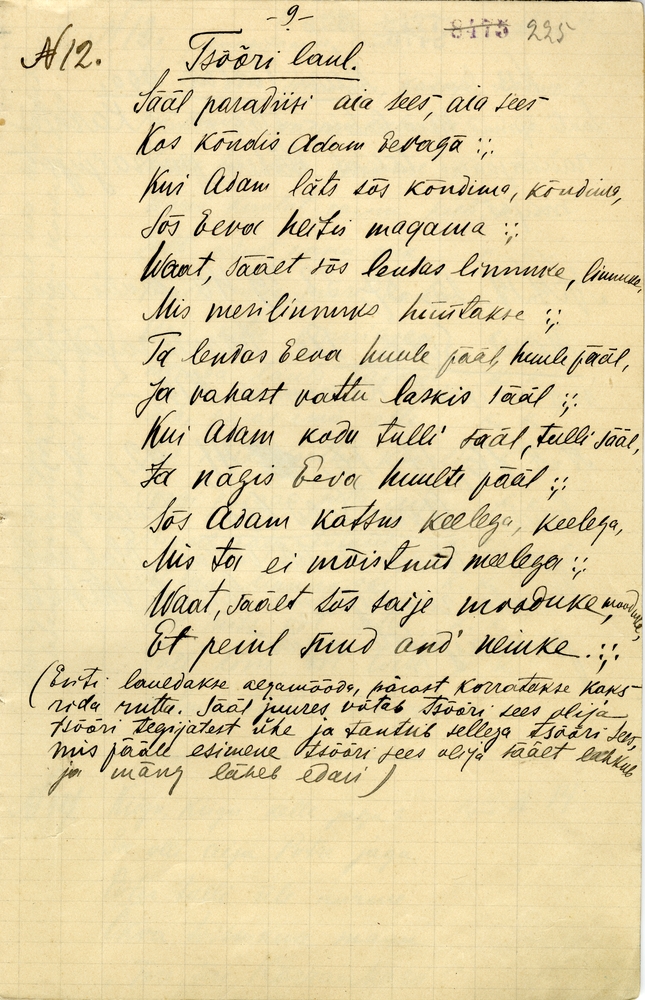 -9-
8475 225
N 12.
Tsõõri laul.
Sääl paradiisi aia sees, aia sees
Kos kõndis Adam Eevaga :,:
Kui Adam läts sõs kõndima, kõndima,
Sõs Eeva heitis magama :,:
Waat, säält sõs lendas linnuke, linnuke,
Mis merilinnuks hüütakse :,:
Ta lendas Eeva huule pääl, huule pääl,
Ja vahast vattu laskis sääl :,:
Kui Adam kodu tulli sääl, tulli sääl,
Ja nägis Eeva huulte pääl :,:
Sõs Adam katsus keelega, keelega,
Mis ta ei mõistnud meelega :,:
Waat, säält sõs saije mooduke, mooduke,
Et peiul suud and' neiuke. :,:
(Esiti lauldakse aegamööda, pärast korratakse kaks
rida ruttu. Sääl juures võtab tsõõri sees olija
tsõõri tegijatest ühe ja tantsib sellega tsõõri sees,
mis pääle esimene tsõõri sees olija säält lahkub
ja mäng läheb edasi)